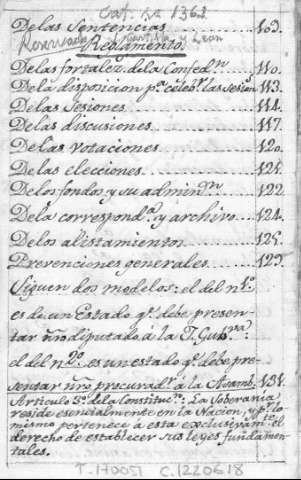 Cat. nº 1362
De las Sentencias 109.
Reservado Castilla y Leon
Reglamento
De las fortalez. de la Confedn 110.
De la disposicion pa. celebr. las sesion. 113.
De las Sesiones 114.
De las discusiones 117.
De las votaciones 120.
De las elecciones 121.
De los fondos y su adminn 122
De la correspond.a y archivo 124.
De los alistamientos 125.
Prevenciones generales 129.
Siguen dos modelos: el del nº 1º
es de un Estado q.e debe presen-
tar nro diputado á la J. Gubva:
el del nº 2º es un estado q.e debe pre-
sentar nro procurad.r á la Asamb. 131.
Articulo 3º de la Constituc.n: La Soberania
reside esencialmente en la Nacion, y p.r lo
mismo pertenece á esta exclusivam.te el
derecho de establecer sus leyes fundamen-
tales.
T.170051 C.1220618